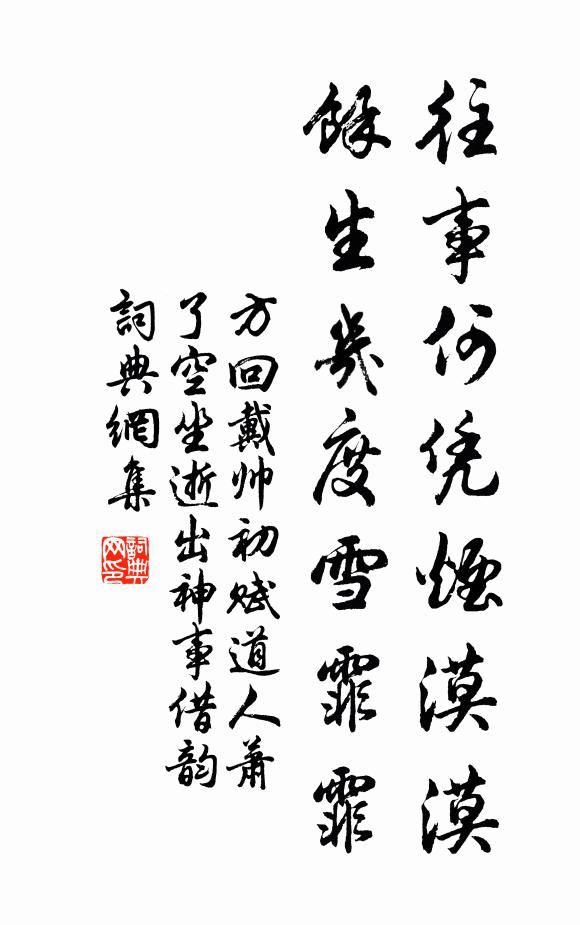 往事何凭煙漠漠
餘生幾度雪霏霏
方回戴帅初赋道人萧
了空坐逝出神事借韵
詞典網集
詞典網印